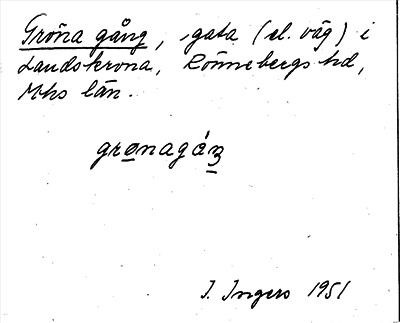 Gröna gång, gata (el. väg) i
Landskrona, Rönnebergs hd,
Mhs län.
grønagáŋ
I. Ingers 1951